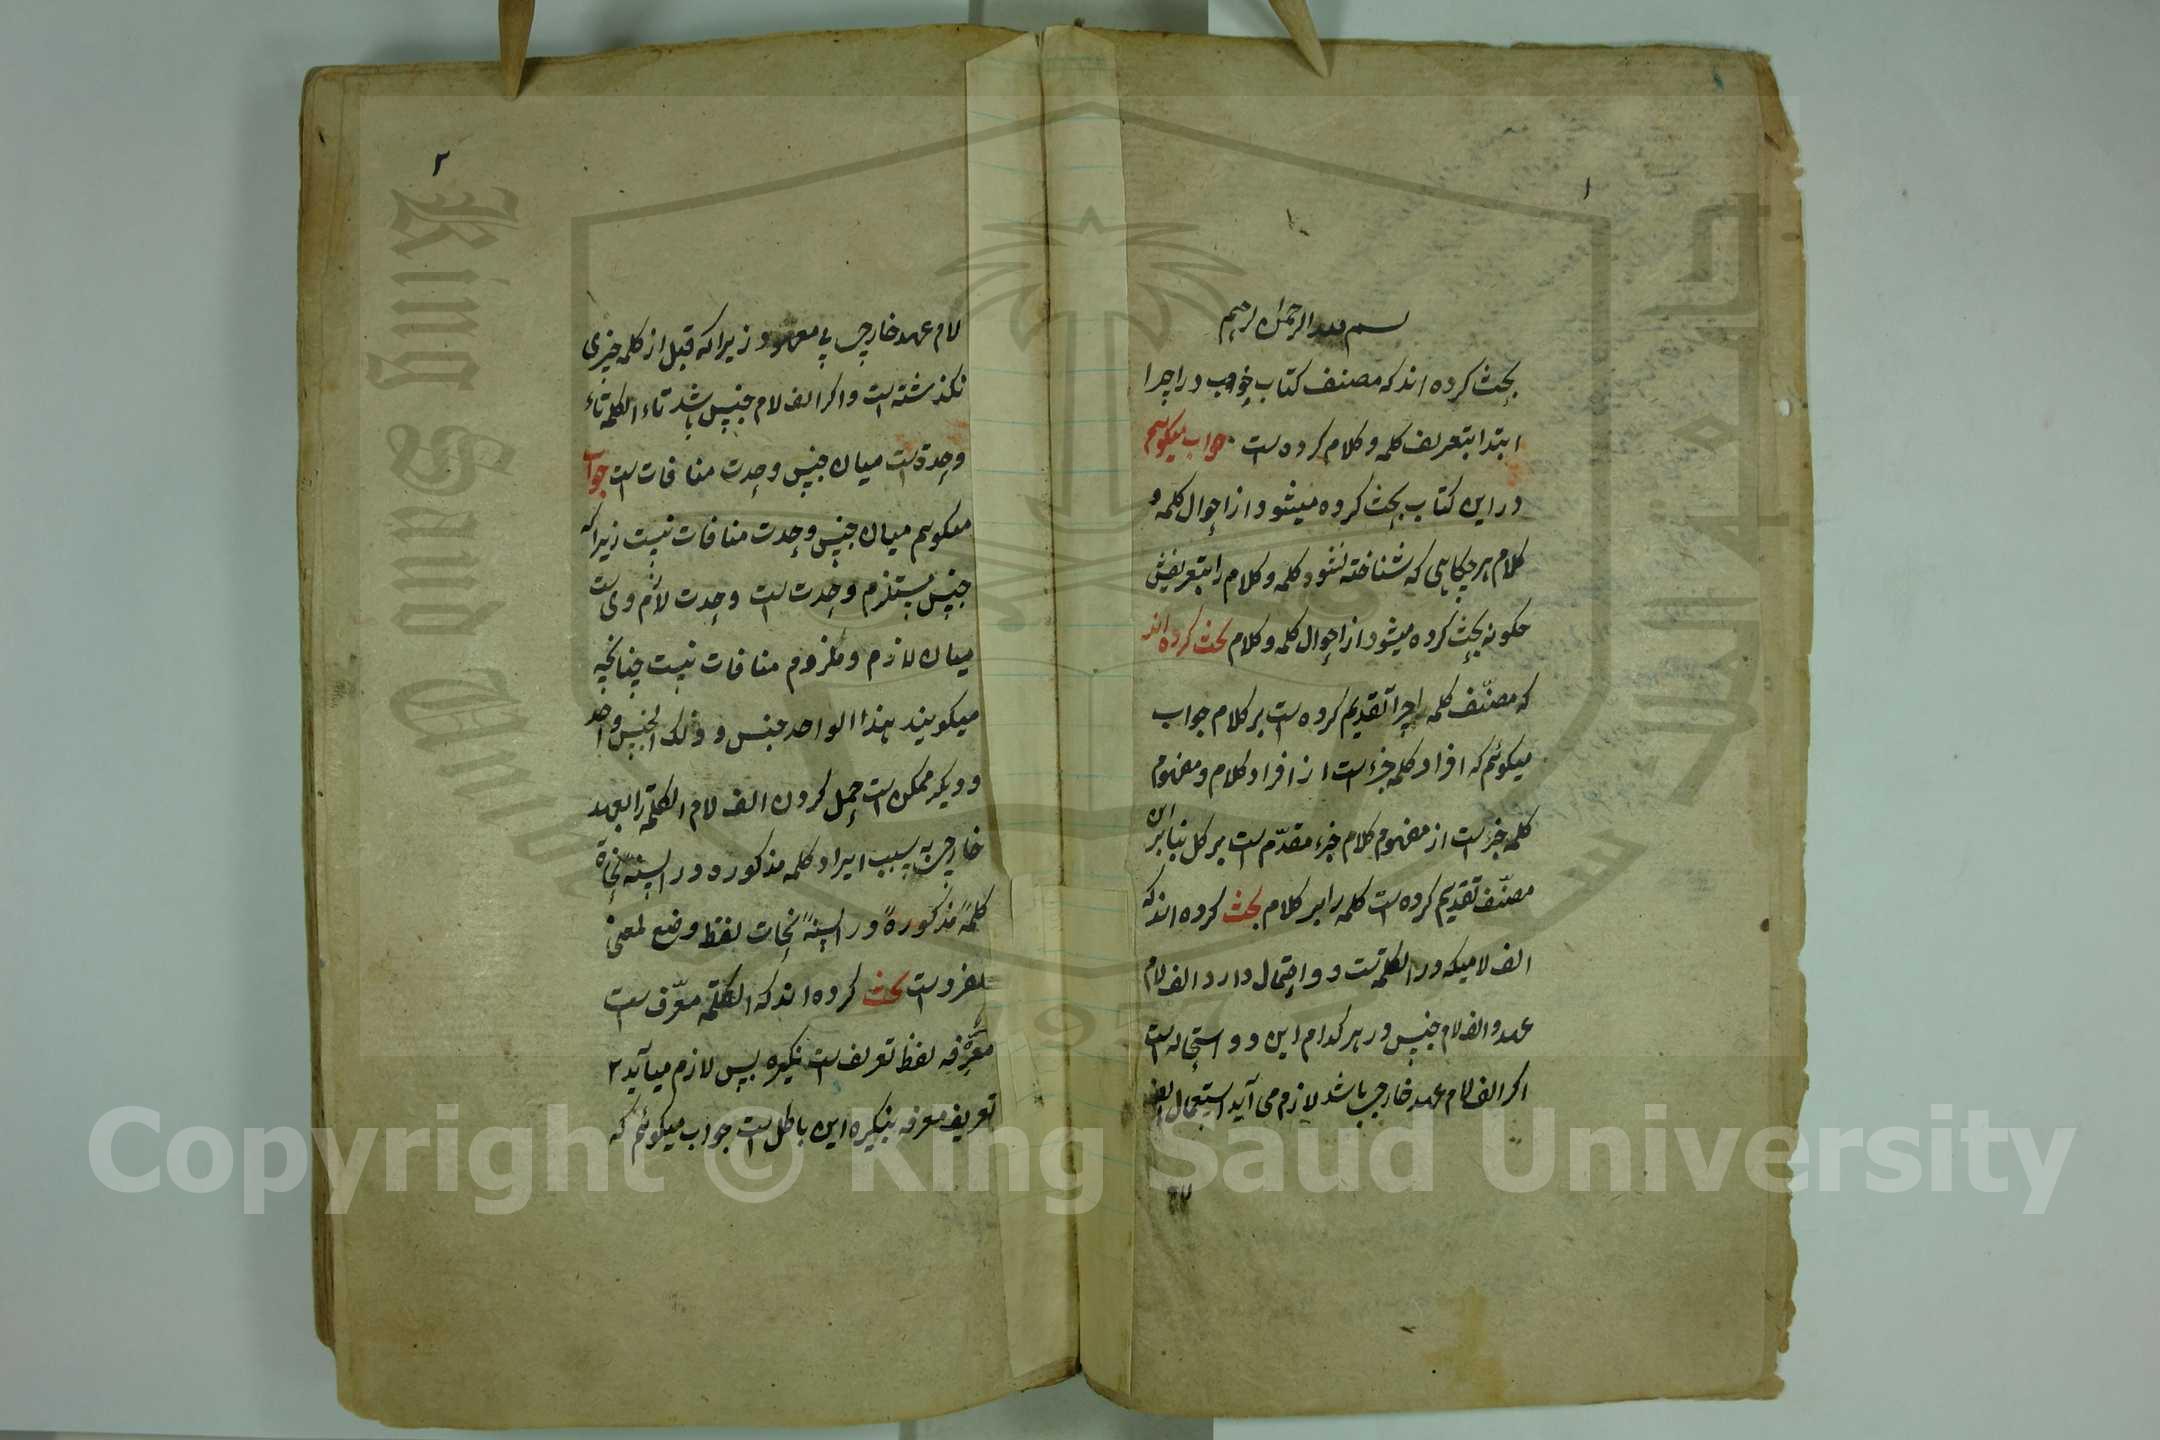 ١
بسم الله الرحمن الرحیم
بحث کرده اند که مصنف کتاب خوب در اچرا
ابتدا بتعریف کلمه و کلام کرده است جواب میکویم
در این کتاب بحث کرده میشود از احوال کلمه و
کلام هر چکاهی که شناخته نشود کلمه و کلام را بتعریفش
چکونه بحث کرده میشود از احوال کلمه و کلام بحث کرده اند
که مصنّف کلمه را چرا تقدیم کرده است بر کلام جواب
میکوئم که افراد کلمه جزء است از افراد کلام و مفهوم
کلمه جزء است از مفهوم کلام جزء مقدّم است بر کل بنابر این
مصنّف تقدیم کرده است کلمه را بر کلام بحث کرده اند که
الف لامیکه در الکلمة است دو احتمال دارد الف لام
عهد و الف لام جنس در هر کدام این دو استحاله است
اکر الف لام عهد خارجی باشد لازم می آید استعمال الف
٢
لام عهد خارجی بی معهود زیرا که قبل از کلمه چیزی
نکذشته است و اکر الف لام جنس باشد تاء الکلمه تاء
وحدة است میان جنس وحدت منافات است جواب
میکویم میان جنس وحدت منافات نیست زیرا که
جنس مستلزم وحدت است وحدت لازم وی است
میان لازم و ملزوم منافات نیست چنانچه
میکویند هذا الواحد جنس و ذلک الجنس واحد
و دیکر ممکن است حمل کردن الف لام الکلمة را بعهد
خارجی به سبب ایراد کلمه مذکوره در السنه نحاة
کلمهٔ مذکورهٔ در السنهٔ نحات لفظ وضع لمعنی
مفرد است بحث کرده اند که الکلمة معرّف است
معرّفه لفظ تعریف است نکیره پس لازم میآید ٢
تعریف معرفه بنکیره این باطل است جواب میکوئم که
King Saud University
1957
Copyright © King Saud University